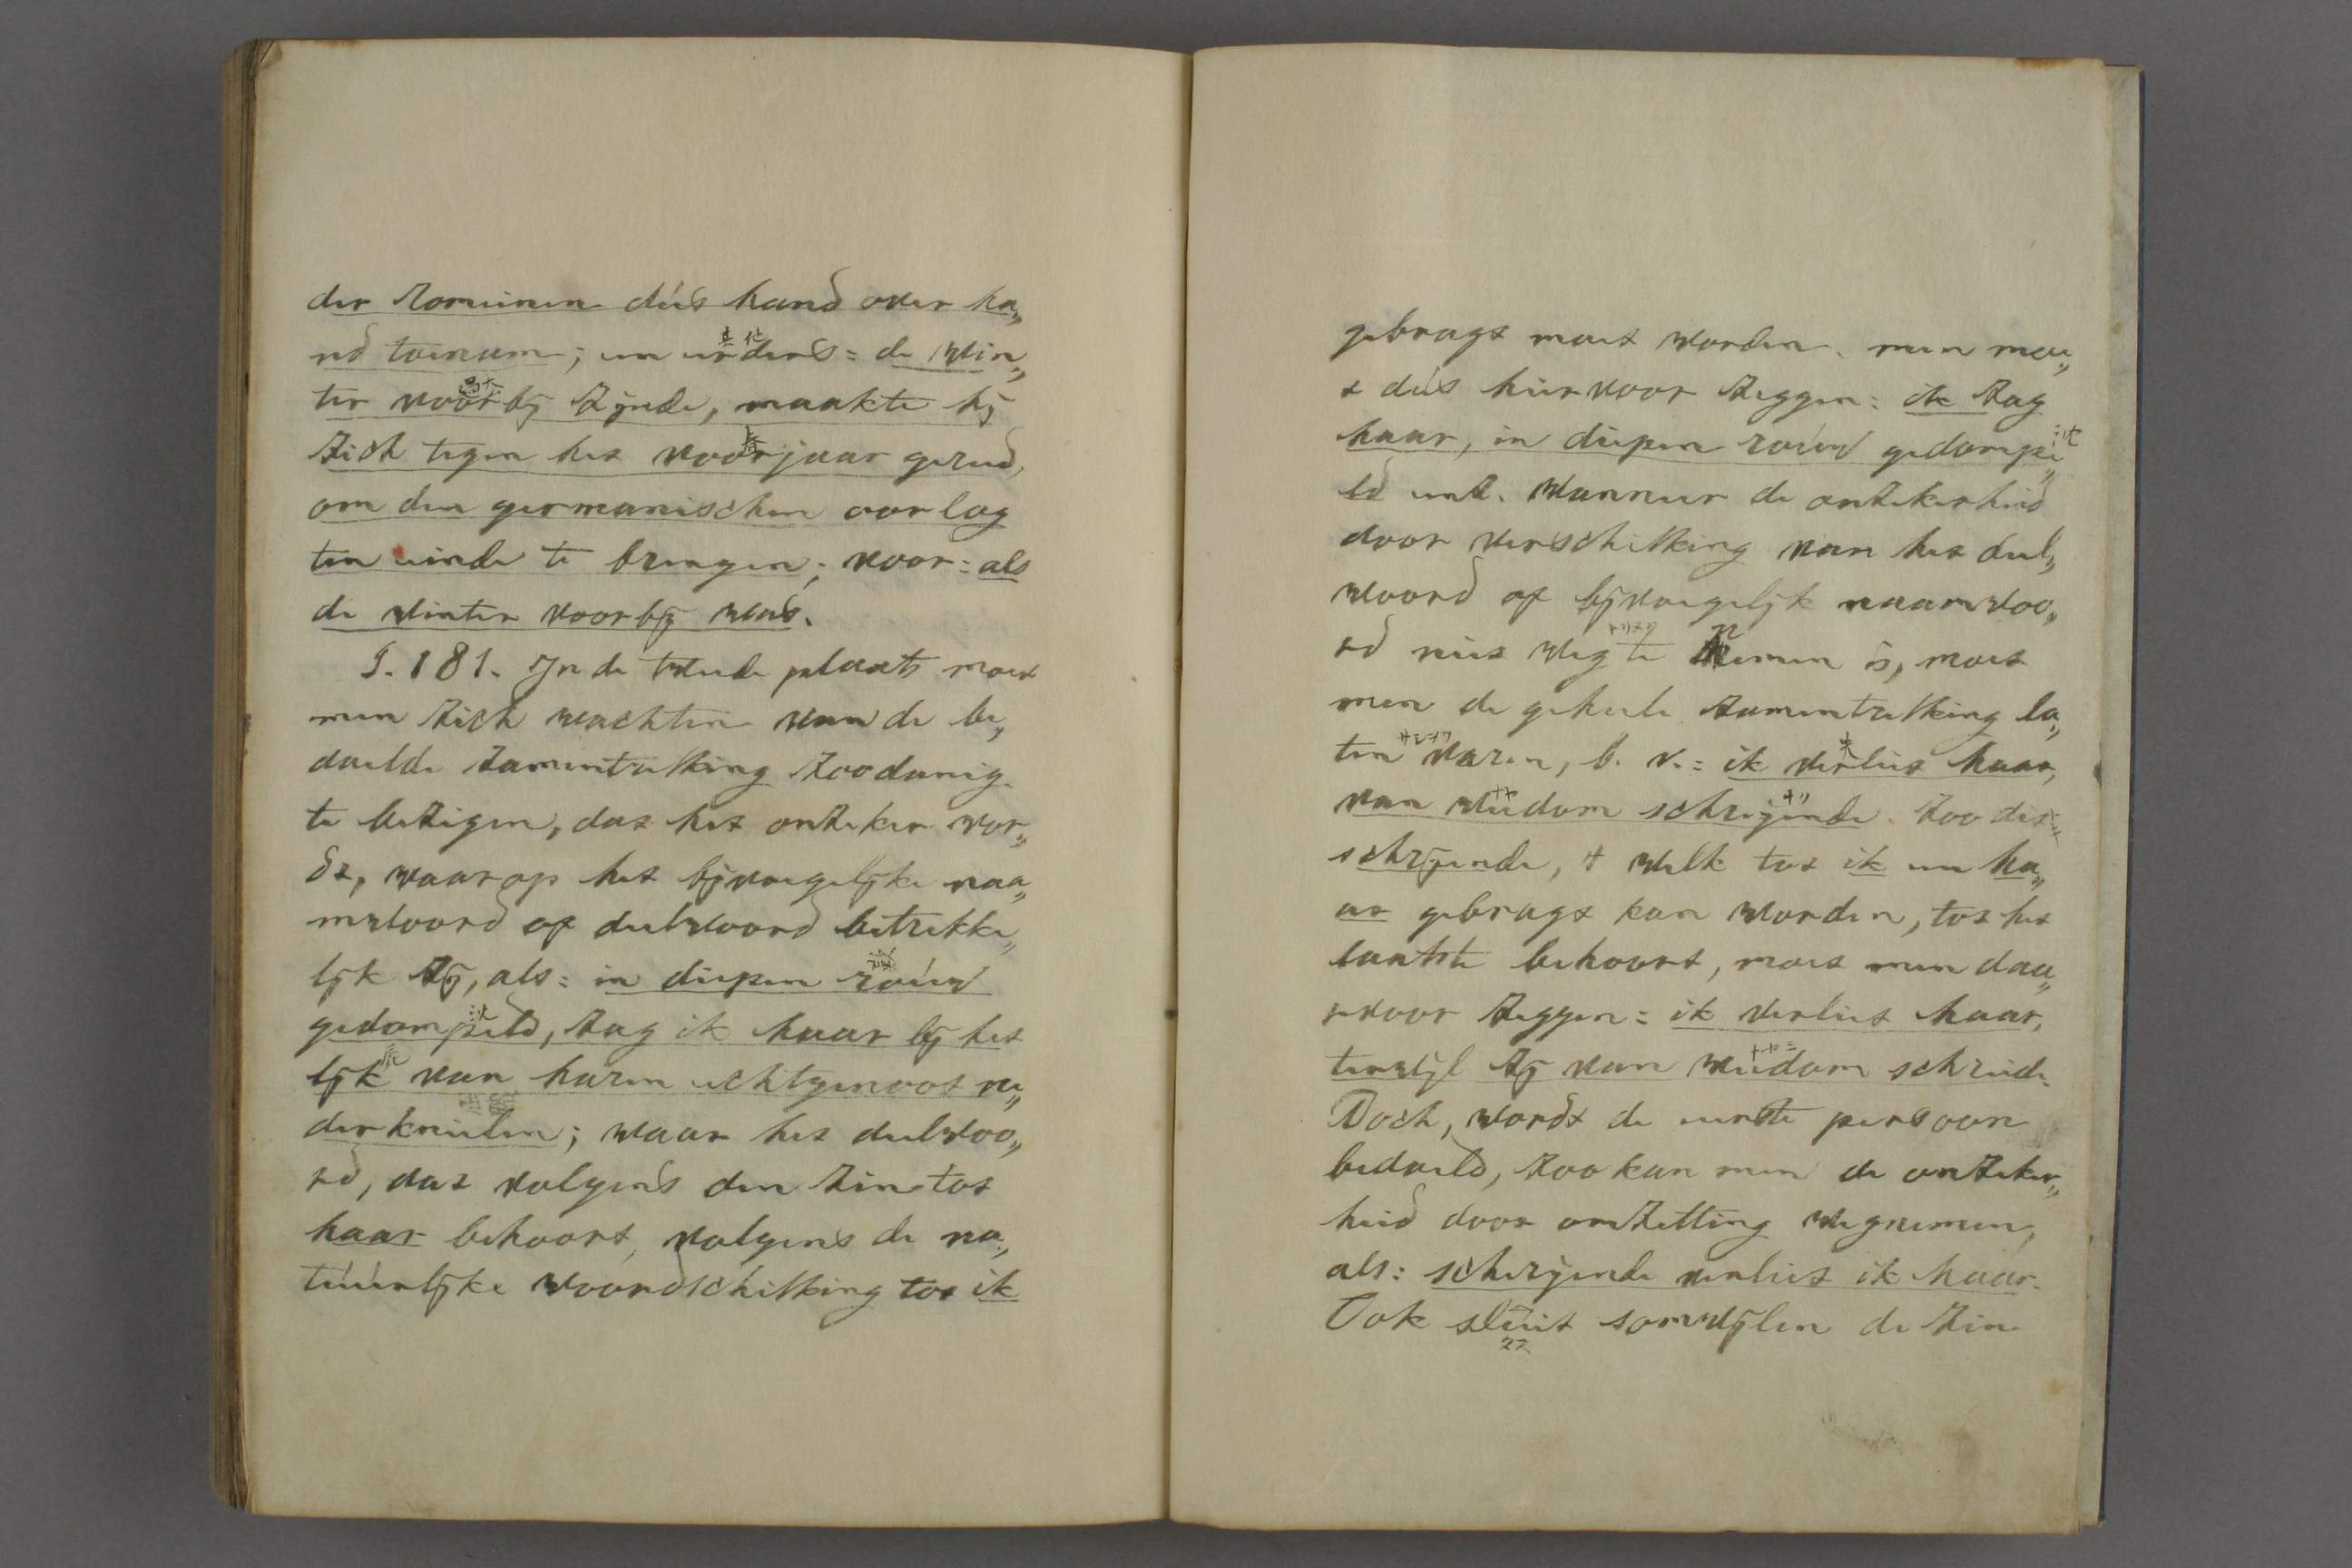 der Romeinen dús hand over ha„
nd toenam; en elders = de win„
ter voorbij zijnde, maakte hij
zich tegen het voorjaar gereed,
om den germanischen oorlog
ten einde te brengen; voor = als
de winter voorbij was.
§. 181. In de tweede plaats moet
men zich wachten van de be„
doelde zamentrekking zoodanig
te bezigen, dat het onzeker wor„
dt, waarop het bijvoegelijke naa„
mwoord of deelwoord betrekke„
lijk zij, als = in diepen roúw
gedompeld, zag ik haar bij het
lijk van haren echtgenoot ne„
derknielen; waar het deelwoo„
rd, dat volgens den zin tot
haar behoort, volgens de na„
túúrlijke woordschikking tot ik
gebragt moet worden. men moe„
t dús hiervoor zeggen: ik zag
haar, in diepen roúw gedompe„
ld enz. Wanneer de onzekerheid
door verschikking van het deel„
woord of bijvoegelijk naamwoo„
rd niet weg te nemen is, moet
men de geheele zamentrekking la„
ten varen, b. v. = ik verliet haar,
van weedom schreijende. Zoo dit
schrijende, 't welk tot ik en ha„
ar gebragt kan worden, tot het
laatste behoort, moet men daa„
rvoor zeggen = ik verliet haar,
terwijl zij van weedom schreide.
Doch, wordt de eerste persoon
bedoeld, zoo kan men de onzeker„
heid door omzetting wegnemen,
als: schreijende verliet ik haar.
Ook slúit somwijlen de zin